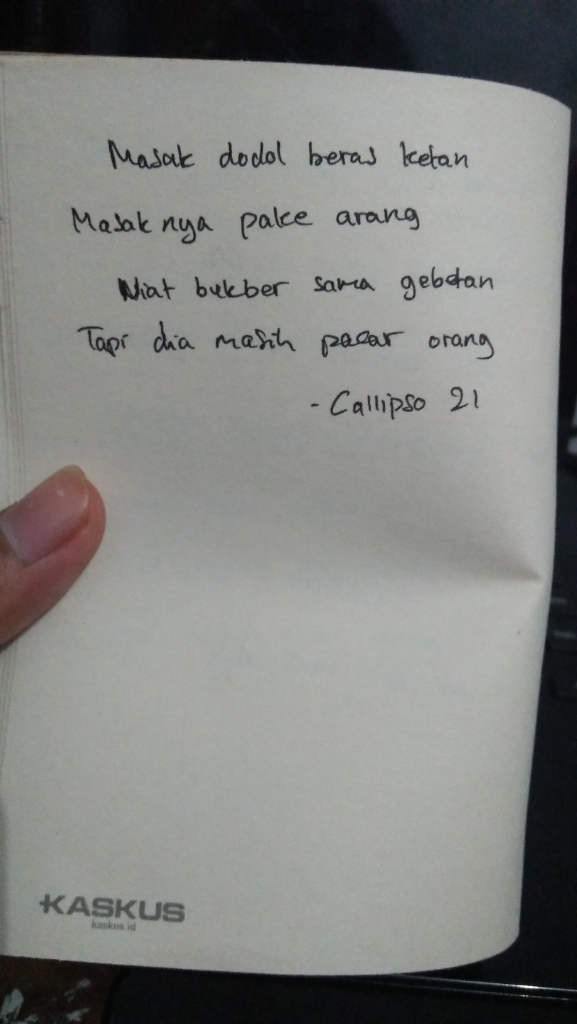 Masak dodol beras ketan
Masaknya pake arang
Niat bukber sama gebetan
Tapi dia masih pacar orang
- Callipso 21
KASKUS
kaskus.id